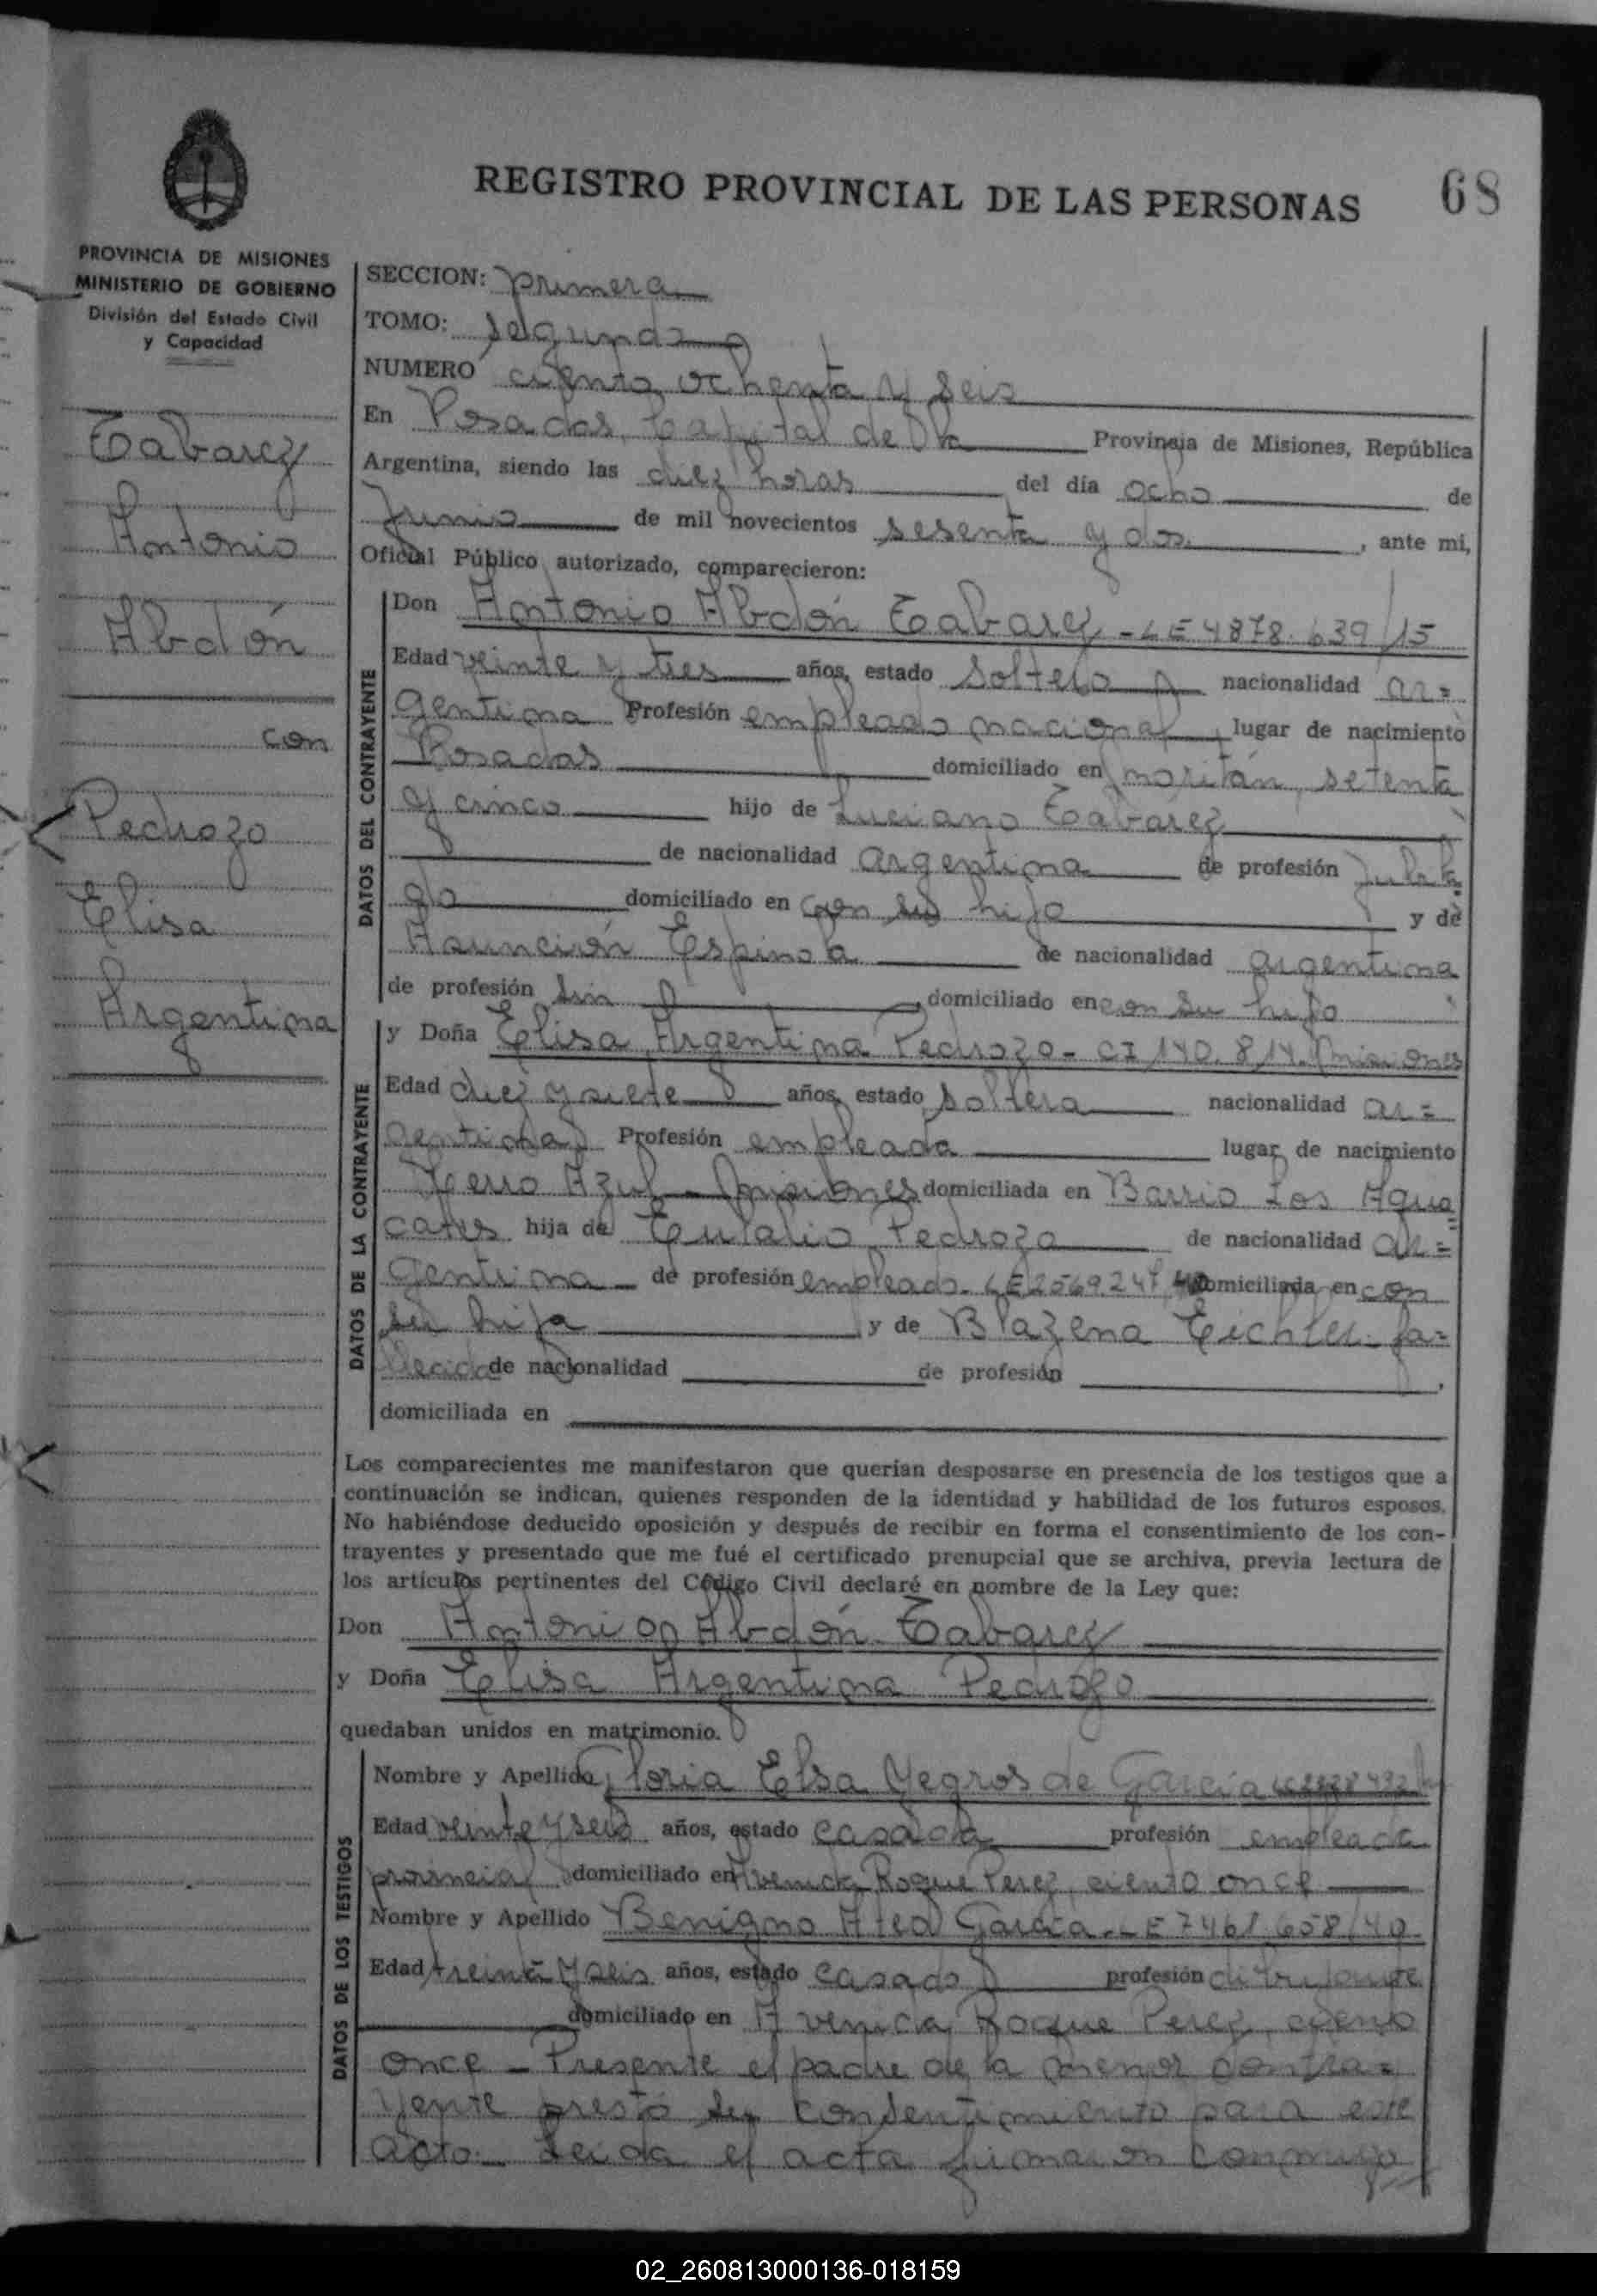 REGISTRO PROVINCIAL DE LAS PERSONAS 68
PROVINCIA DE MISIONES
MINISTERIO DE GOBIERNO
División del Estado Civil
y Capacidad
Tabarez
Antonio
Abdón
con
Pedrozo
Elisa
Argentina
SECCION: primera
TOMO: segundo
NUMERO ciento ochenta y seis
En Posadas, Capital de la Provincia de Misiones, República
Argentina, siendo las diez horas del día ocho de
Junio de mil novecientos sesenta y dos, ante mi,
Oficial Público autorizado, comparecieron:
DATOS DEL CONTRAYENTE
Don Antonio Abdón Tabarez - LE 4878.639/15
Edad veinte y tres años, estado soltero nacionalidad ar=
gentina Profesión empleado nacional, lugar de nacimiento
Posadas domiciliado en setenta
y cinco hijo de Luciano Tabarez
de nacionalidad argentina de profesión Jubila
do domiciliado en con su hijo y de
Asunción Espinola de nacionalidad argentina
de profesión sin, domiciliado en con su hijo
DATOS DE LA CONTRAYENTE
y Doña Elisa Argentina Pedrozo - CI 140.814. Misiones
Edad diez y siete años, estado soltera nacionalidad ar=
gentina Profesión empleada lugar de nacimiento
Cerro Azul - Misiones domiciliada en Barrio Los Agua
cates hija de Eulalio Pedrozo de nacionalidad ar=
gentina de profesión empleado. LE domiciliada en con
su hija y de Blazena Eichler fa=
llecida de nacionalidad de profesión
domiciliada en
Los comparecientes me manifestaron que querían desposarse en presencia de los testigos que a
continuación se indican, quienes responden de la identidad y habilidad de los futuros esposos.
No habiéndose deducido oposición y después de recibir en forma el consentimiento de los con-
trayentes y presentado que me fué el certificado prenupcial que se archiva, previa lectura de
los artículos pertinentes del Código Civil declaré en nombre de la Ley que:
Don Antonio Abdón Tabarez
y Doña Elisa Argentina Pedrozo
quedaban unidos en matrimonio.
DATOS DE LOS TESTIGOS
Nombre y Apellido Gloria Elsa Yegros de García
Edad veinte y seis años, estado casada profesión empleada
provincial domiciliado en Avenida Roque Perez, ciento once
Nombre y Apellido Benigno García - LE 7461.658/40
Edad treinta y seis años, estado casado profesión
domiciliado en Avenida Roque Perez, ciento
once - Presente el padre de la menor contra=
yente prestó su consentimiento para este
acto. Leida el acta firmaron conmigo
02_260813000136-018159